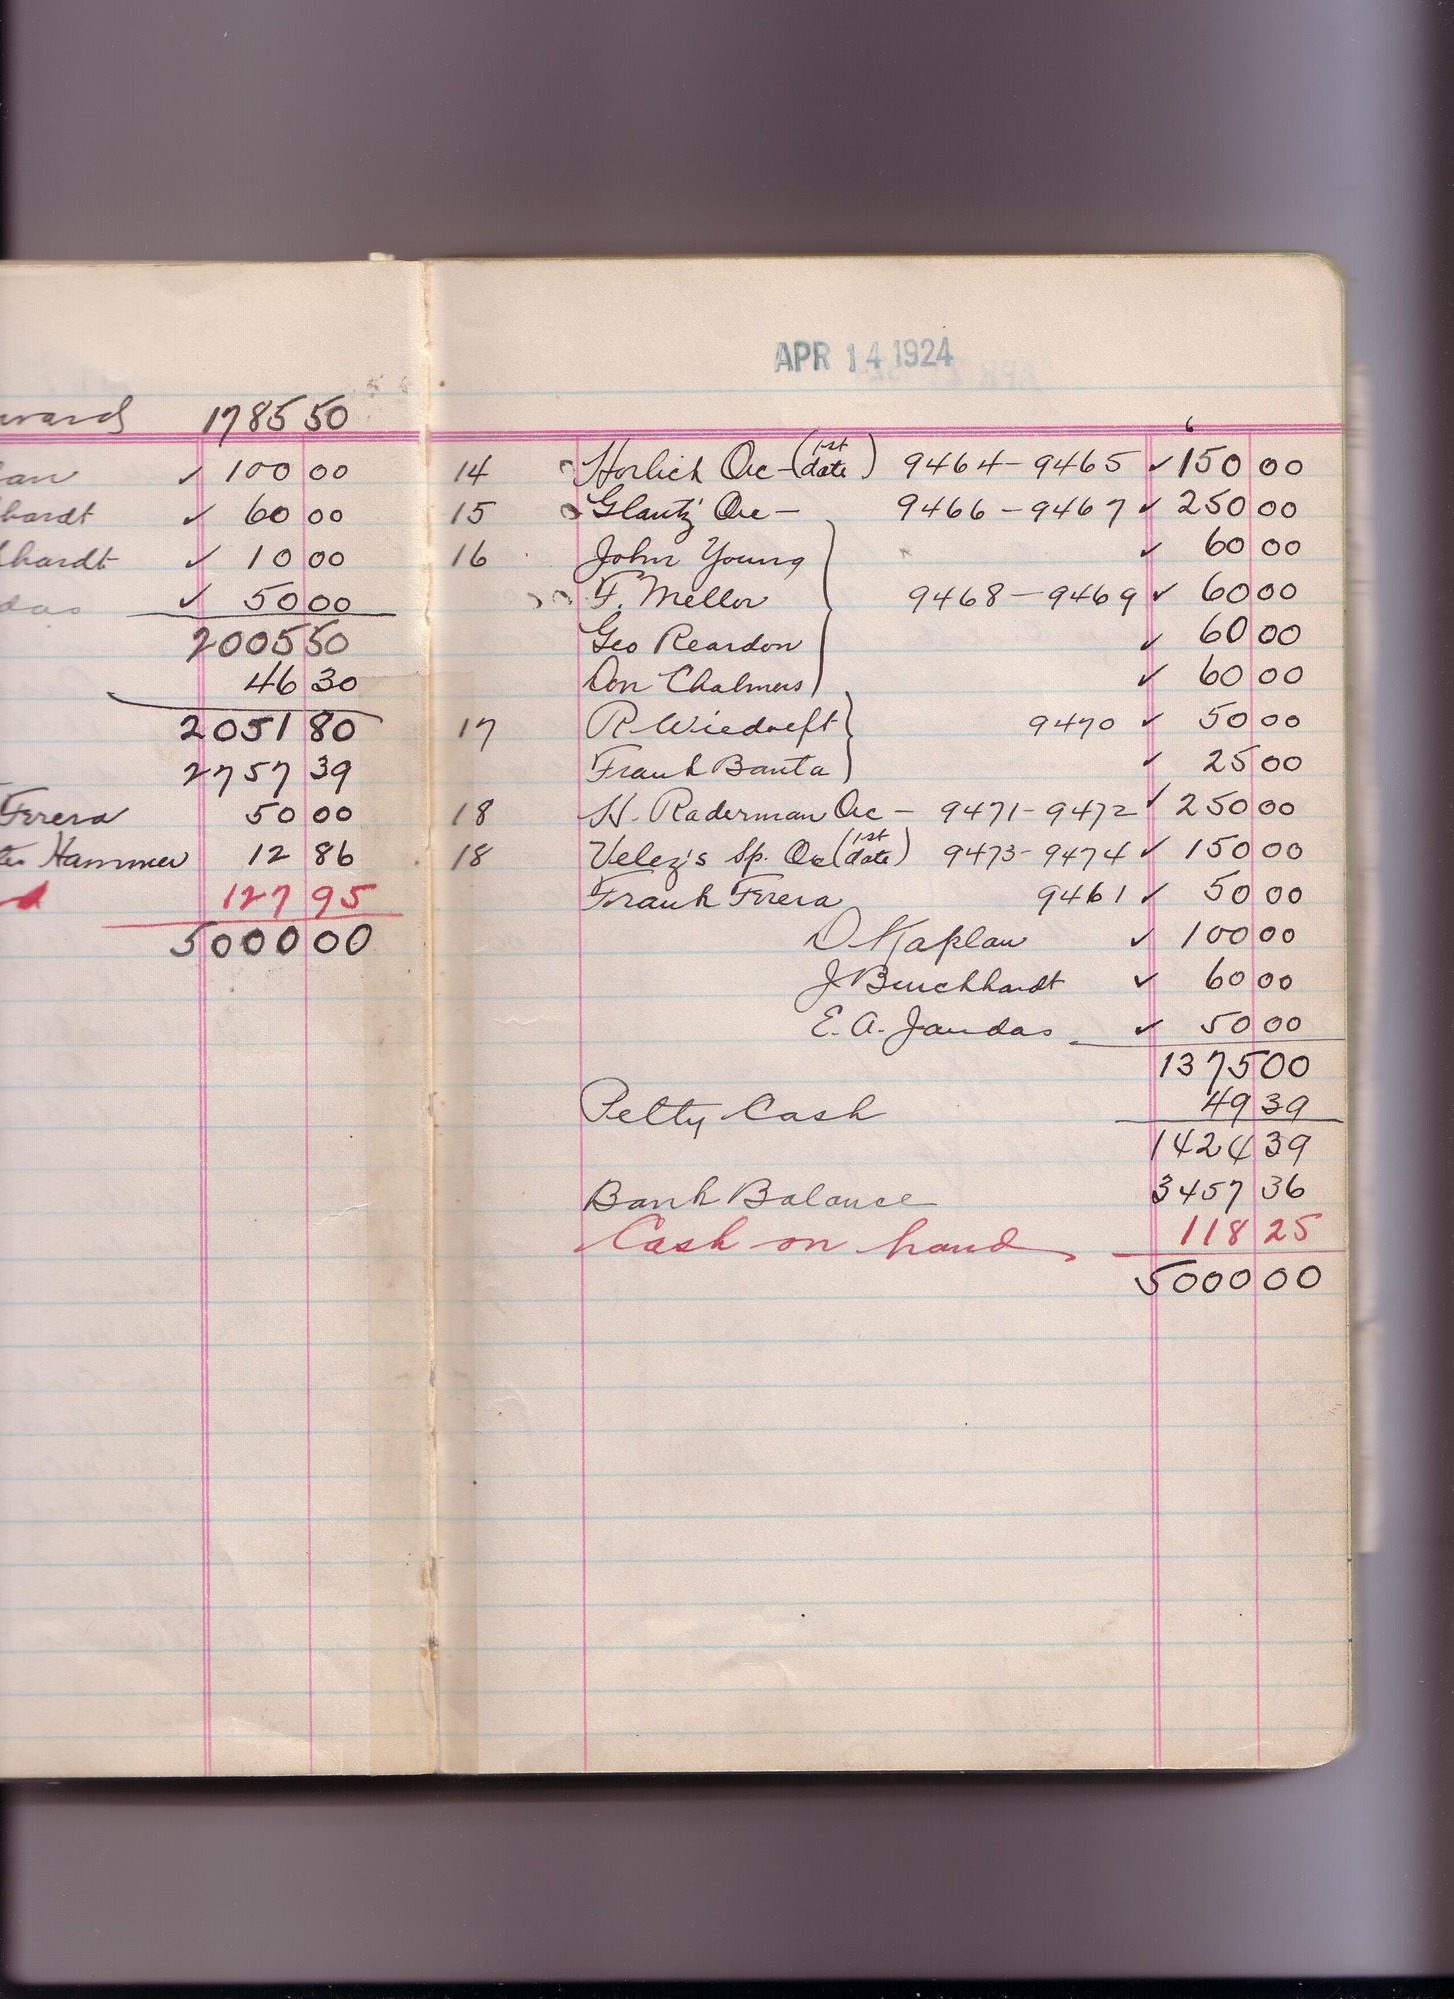 178550
✓ 100 00
✓ 60 00
✓ 10 00
✓ 50 00
2005 50
46 30
2051 80
2757 39
Ferera 50 00
Hammer 12 86
127 95
5000 00
APR 14 1924
14 Horlick Orc - (1st date) 9464-9465 ✓ 150 00
15 Glantz Orc - 9466-9467 ✓ 250 00
16 John Young ✓ 60 00
F. Mellor 9468-9469 ✓ 60 00
Geo Reardon ✓ 60 00
Don Chalmers ✓ 60 00
17 R Wiedoeft 9470 ✓ 50 00
Frank Banta ✓ 25 00
18 H. Raderman Orc - 9471-9472 ✓ 250 00
18 Velez's Sp. Orc (1st date) 9473-9474 ✓ 150 00
Frank Ferera 9461 ✓ 50 00
D Kaplan ✓ 100 00
J Burckhardt ✓ 60 00
E. A. Jandas ✓ 50 00
1375 00
Petty Cash 49 39
1424 39
Bank Balance 3457 36
Cash on hand 118 25
5000 00